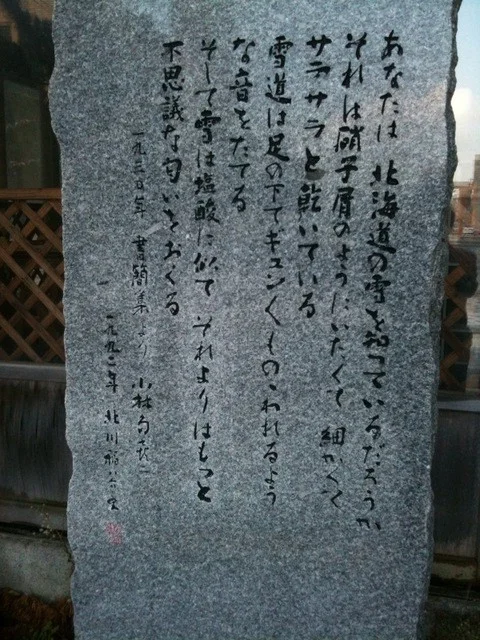 あなたは 北海道の雪を知つているだろうか
それは硝子屑のようにいたくて 細かくて
サラサラと乾いている
雪道は足の下でギユンくものこわれるよう
な音をたてる
そして雪は塩酸に似て それよりはもつと
不思議な匂いをおくる
一九三五年 書簡集より 小林
一九九二年 北川